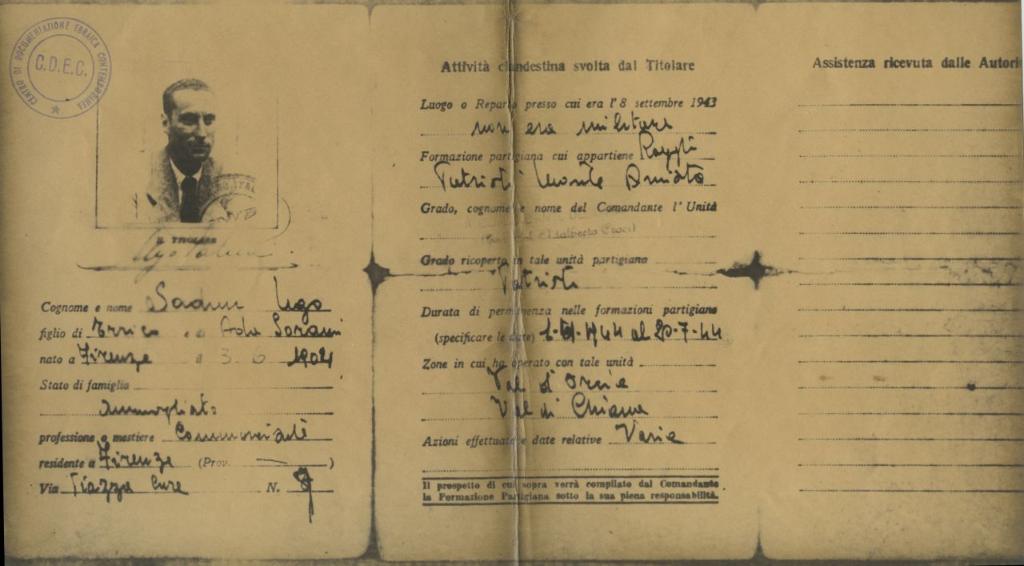 CENTRO DI DOCUMENTAZIONE EBRAICA CONTEMPORANEA
C.D.E.C.
IL TITOLARE
Cognome e nome Sadun Ugo
figlio di Enrico e di Ada Sorani
nato a Firenze 1904
Stato di famiglia
Ammogliato
professione o mestiere Commerciante
residente a Firenze (Prov. )
Via Piazza Cure N. 7
Attività clandestina svolta dal Titolare
Luogo o Reparto presso cui era l'8 settembre 1943
non era militare
Formazione partigiana cui appartiene
Patrioti Monte Amiata
Grado, cognome e nome del Comandante l'Unità
Grado ricoperto in tale unità partigiana
Patriota
Durata di permanenza nelle formazioni partigiane
(specificare le date) al 20-7-44
Zone in cui ha operato con tale unità
Val d'Orcia
Val di Chiana
Azioni effettuate e date relative Varie
Il prospetto di cui sopra verrà compilato dal Comandante
la Formazione Partigiana sotto la sua piena responsabilità.
Assistenza ricevuta dalle Autori